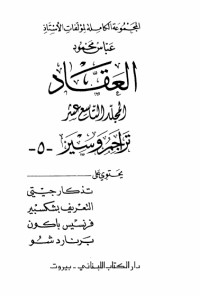 المجموعة الكاملة لمؤلفات الأستاذ
عباس محمود
العقاد
المجلد التاسع عشر
تراجم وسير -٥-
يحتوي على
تذكار جيتى
التعريف بشكسبير
فرنسيس باكون
برنارد شو
دار الكتاب اللبناني - بيروت